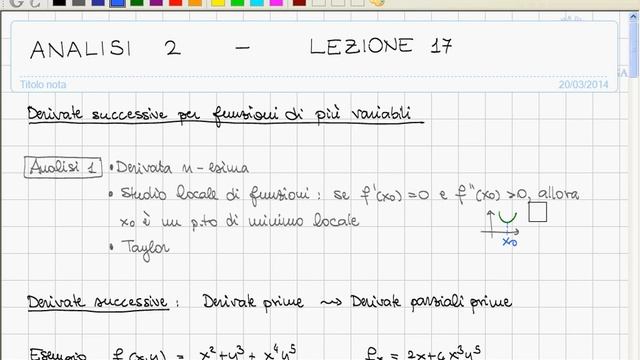 ANALISI 2 - LEZIONE 17
Titolo nota 20/03/2014
Derivate successive per funzioni di più variabili
Analisi 1 • Derivata n-esima
• Studio locale di funzioni : se f'(x₀) = 0 e f''(x₀) > 0, allora
x₀ è un p.to di minimo locale
x₀
• Taylor
Derivate successive : Derivate prime ⇝ Derivate parziali prime
Esempio f(x,y) = x² + y³ + x⁴y⁵ fₓ = 2x + 4x³y⁵